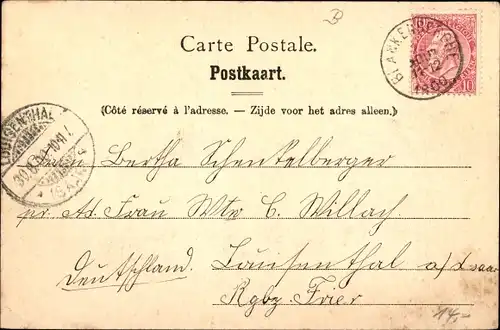 B
Carte Postale.
Postkaart.
(Côté réservé à l'adresse. — Zijde voor het adres alleen.)
BLANKENBERGHE
10
Frau Bertha Schenkelberger
pr. Ad. Frau Wtw C. Willach
Deutschland.
Lauisenthal a/d Saar
Rgbz Trier
14,-